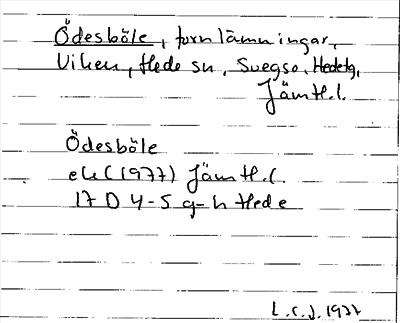 Ödesböle, fornlämningar,
Viken, Hede sn, Svegso, Hedetg,
Jämtl.l.
Ödesböle
ek (1977) Jämtl.l.
17 D 4-5 g-h Hede
L.C.J. 1977